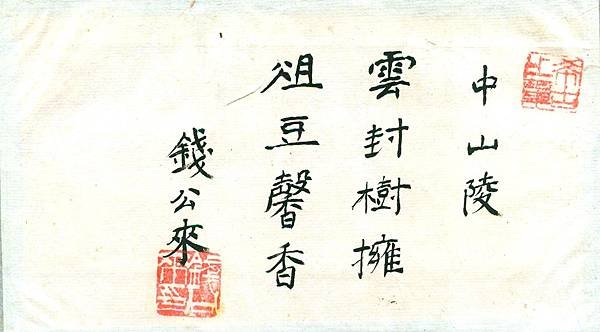 中山陵
雲封樹擁
俎豆馨香
錢公來